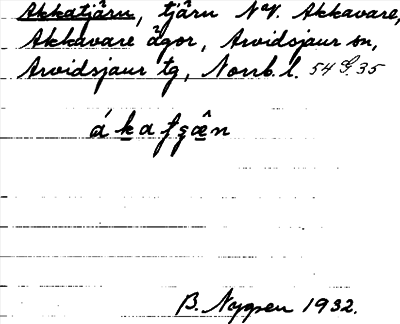 Akkatjärn, tjärn N av. Akkavare,
Akkavare ägor, Arvidsjaur sn,
Arvidsjaur tg, Norrb. l. 54 G. 35
B. Nygren 1932.